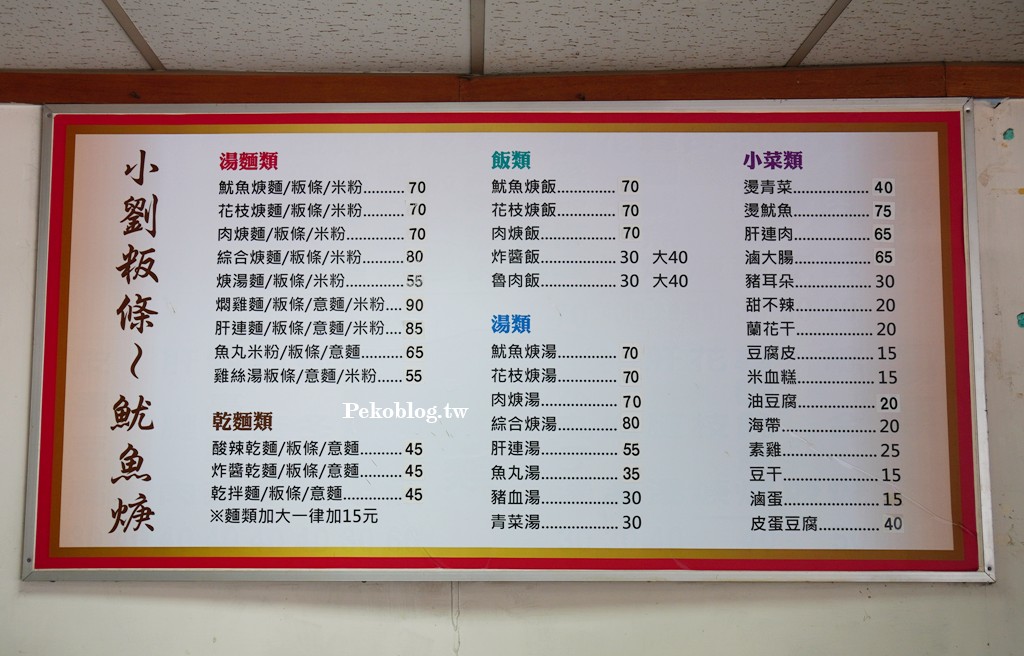 小劉粄條～魷魚焿
湯麵類
魷魚焿麵/粄條/米粉.......... 70
花枝焿麵/粄條/米粉.......... 70
肉焿麵/粄條/米粉.............. 70
綜合焿麵/粄條/米粉.......... 80
焿湯麵/粄條/米粉.............. 55
燜雞麵/粄條/意麵/米粉.... 90
肝連麵/粄條/意麵/米粉.... 85
魚丸米粉/粄條/意麵.......... 65
雞絲湯粄條/意麵/米粉...... 55
乾麵類
酸辣乾麵/粄條/意麵.......... 45
炸醬乾麵/粄條/意麵.......... 45
乾拌麵/粄條/意麵.............. 45
※麵類加大一律加15元
飯類
魷魚焿飯.............. 70
花枝焿飯.............. 70
肉焿飯.................. 70
炸醬飯.................. 30 大40
魯肉飯.................. 30 大40
湯類
魷魚焿湯.............. 70
花枝焿湯.............. 70
肉焿湯.................. 70
綜合焿湯.............. 80
肝連湯.................. 55
魚丸湯.................. 35
豬血湯.................. 30
青菜湯.................. 30
小菜類
燙青菜.................. 40
燙魷魚.................. 75
肝連肉.................. 65
滷大腸.................. 65
豬耳朵.................. 30
甜不辣.................. 20
蘭花干.................. 20
豆腐皮.................. 15
米血糕.................. 15
油豆腐.................. 20
海帶...................... 20
素雞...................... 25
豆干...................... 15
滷蛋...................... 15
皮蛋豆腐.............. 40
Pekoblog.tw